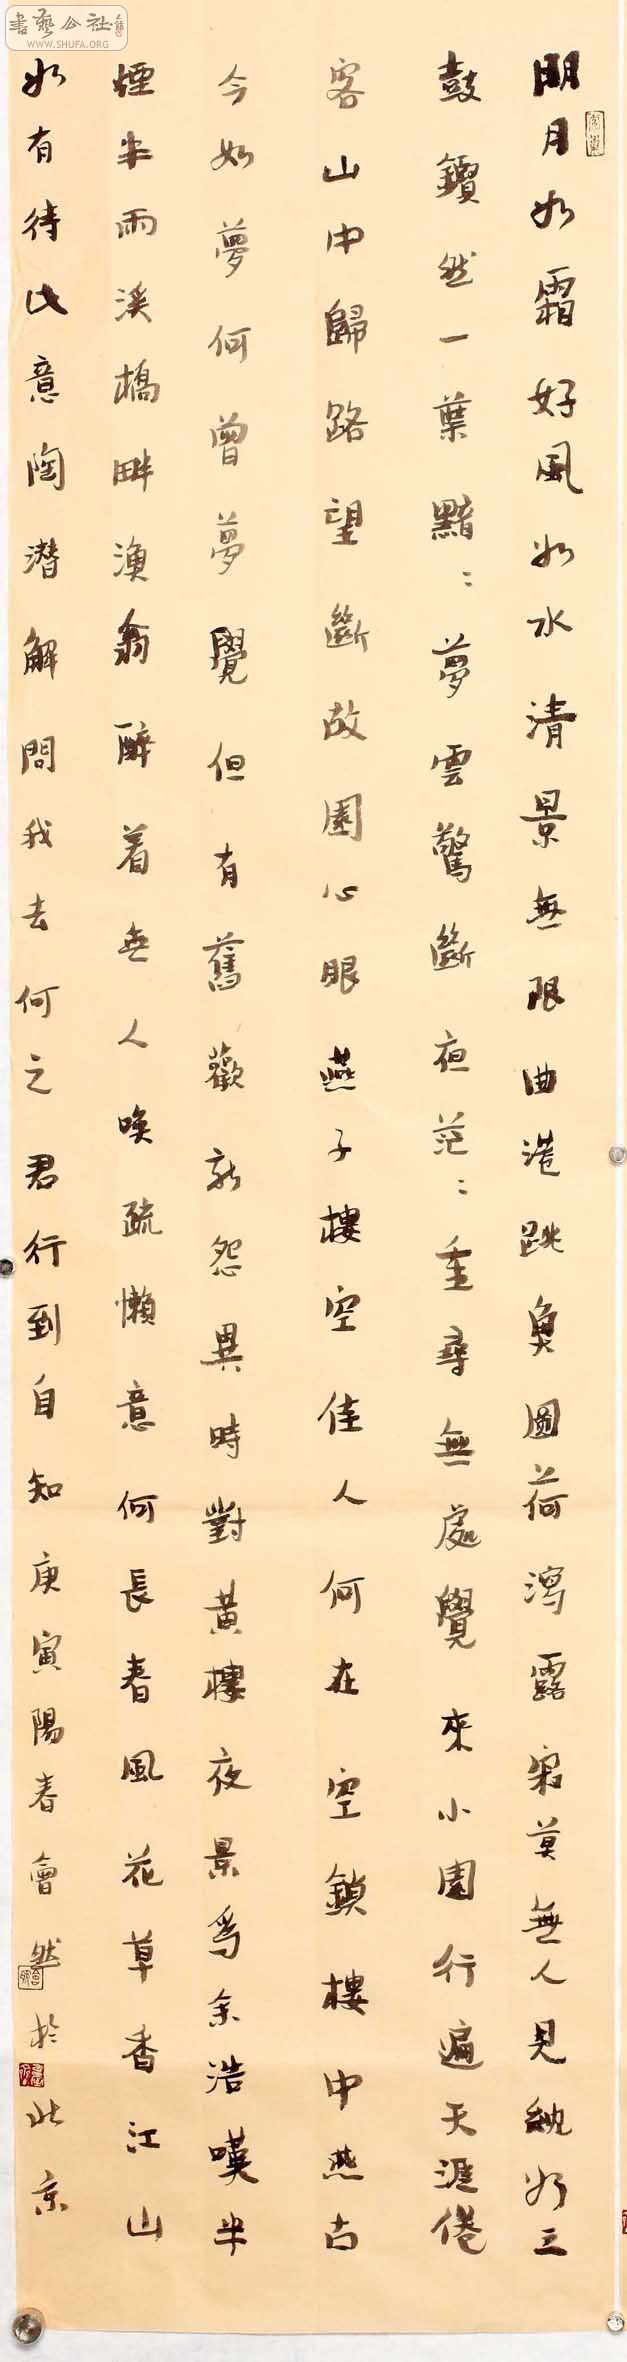 書藝公社
WWW.SHUFA.ORG
明月如霜好風如水清景無限曲港跳魚圓荷瀉露寂莫無人見紞如三
鼓鏗然一葉黯〻夢雲驚斷夜茫〻重尋無處覺來小園行遍天涯倦
客山中歸路望斷故園心眼燕子樓空佳人何在空鎖樓中燕古
今如夢何曾夢覺但有舊歡新怨異時對黃樓夜景為余浩嘆半
煙半雨溪橋畔漁翁醉着無人喚疏懶意何長春風花草香江山
如有待此意陶潛解問我去何之君行到自知庚寅陽春會然於北京